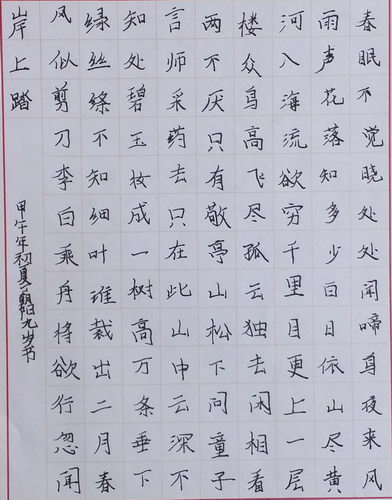 春眠不觉晓处处闻啼鸟夜来风
雨声花落知多少白日依山尽黄
河入海流欲穷千里目更上一层
楼众鸟高飞尽孤云独去闲相看
两不厌只有敬亭山松下问童子
言师采药去只在此山中云深不
知处碧玉妆成一树高万条垂下
绿丝绦不知细叶谁裁出二月春
风似剪刀李白乘舟将欲行忽闻
岸上踏
甲午年初夏朝阳九岁书